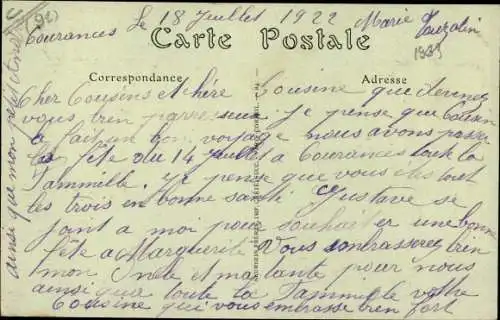 (92)
Courances Le 18 Juillet 1922 Marie
Carte Postale
Correspondance
Adresse
Cher Cousins et chère Cousine que
vous bien je pense que Cousin
a fait un bon voyage nous avons passer
la fête du 14 Juillet a Courances tout la
Fammille. Je pense que vous êtes tout
les trois en bonne santé Gustave se
joint a moi pour souhaiter une bonne
fête a Marguerite Vous embrasserez bien
mon Oncle et ma tante pour nous
ainsi que toute la Fammille votre
Cousine qui vous embrasse bien fort
ainsi que mon petit